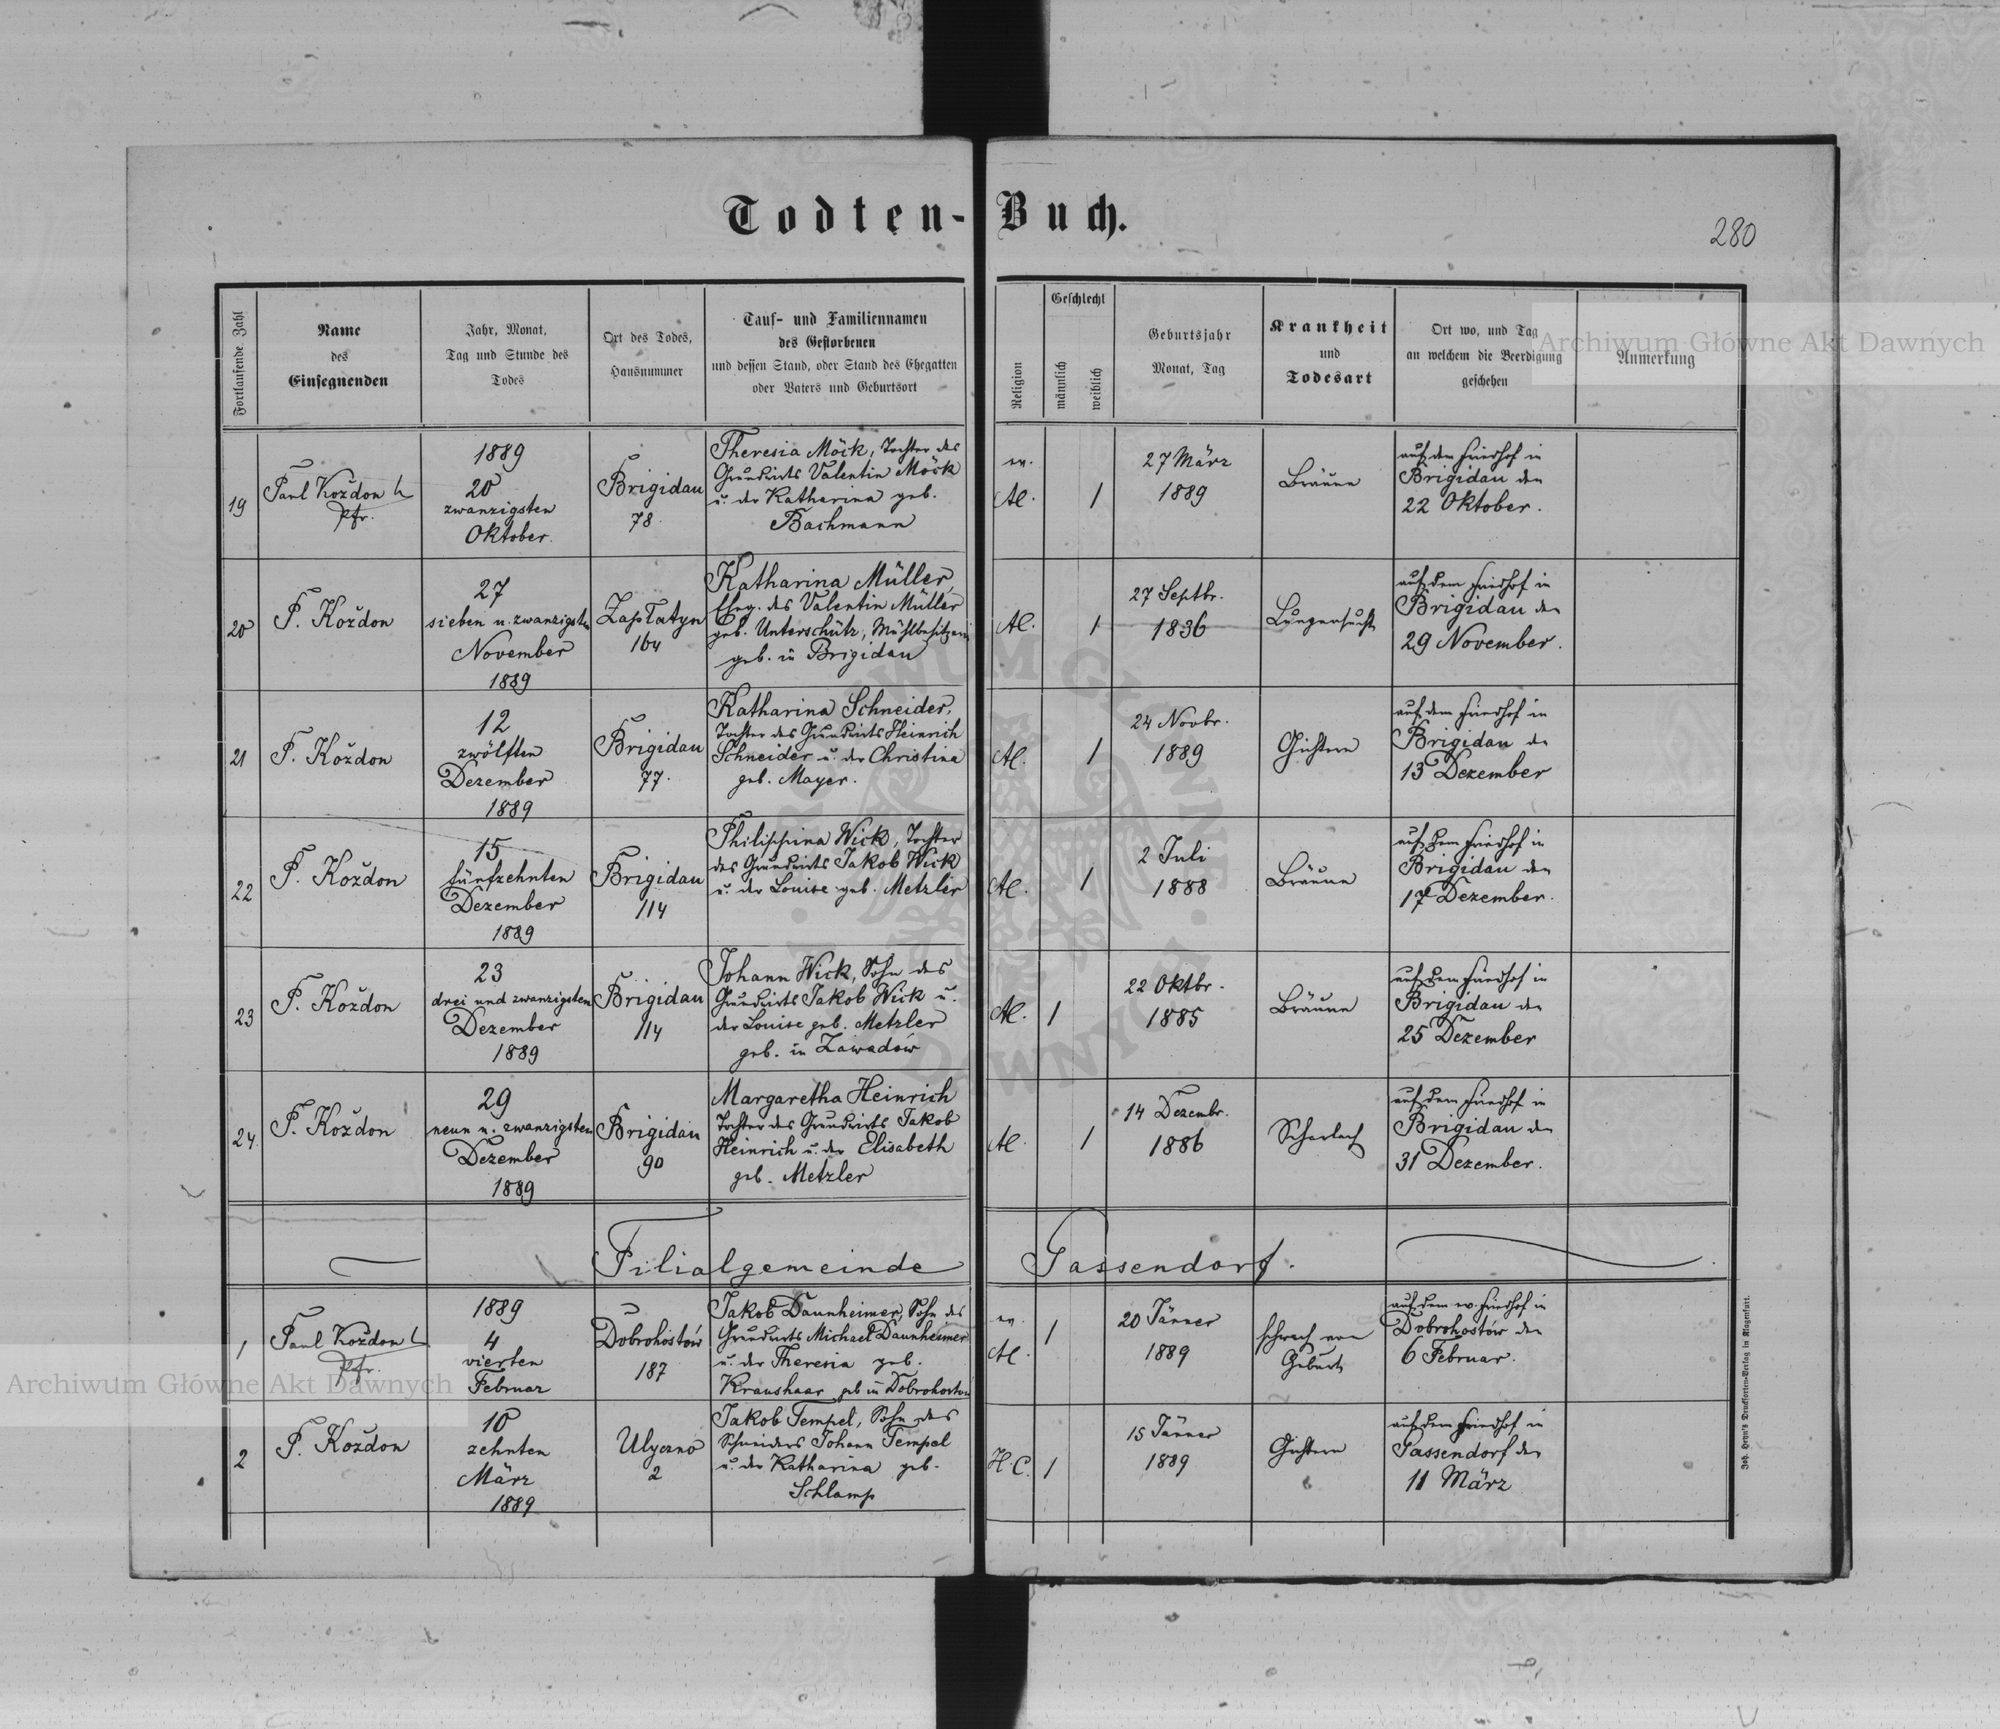 Todten-Buch.
280
Fortlaufende Zahl
Name
des
Einsegnenden
Jahr, Monat,
Tag und Stunde des
Todes
Ort des Todes,
Hausnummer
Tauf- und Familiennamen
des Gestorbenen
und dessen Stand, oder Stand des Ehegatten
oder Vaters und Geburtsort
Religion
Geschlecht
männlich
weiblich
Geburtsjahr
Monat, Tag
Krankheit
und
Todesart
Ort wo, und Tag
an welchem die Beerdigung
geschehen
Anmerkung
19
Paul Koždon
Pfr.
1889
20
zwanzigsten
Oktober.
Brigidau
78.
Theresia Möck, Tochter des
Grundwirts Valentin Möck
u. der Katharina geb.
Bachmann
ev.
AC.
1
27 März
1889
Bräune
auf dem Friedhof in
Brigidau den
22 Oktober.
20
P. Koždon
27
sieben u. zwanzigsten
November
1889
Zaplatyn
164
Katharina Müller,
Eheg. des Valentin Müller
geb. Unterschütz, Mühlbesitzerin
geb. in Brigidau
AC.
1
27 Septbr.
1836
Lungensucht
auf dem Friedhof in
Brigidau den
29 November.
21
P. Koždon
12
zwölften
Dezember
1889
Brigidau
77.
Katharina Schneider,
Tochter des Grundwirts Heinrich
Schneider u. der Christina
geb. Mayer.
AC.
1
24 Novbr.
1889
Gichtern
auf dem Friedhof in
Brigidau den
13 Dezember
22
P. Koždon
15
fünfzehnten
Dezember
1889
Brigidau
114
Philippina Wick, Tochter
des Grundwirts Jakob Wick
u. der Louise geb. Metzler
AC.
1
2 Juli
1888
Bräune
auf dem Friedhof in
Brigidau den
17 Dezember.
23
P. Koždon
23
drei und zwanzigsten
Dezember
1889
Brigidau
114
Johann Wick, Sohn des
Grundwirts Jakob Wick u.
der Louise geb. Metzler
geb. in Zawadów
AC.
1
22 Oktbr.
1885
Bräune
auf dem Friedhof in
Brigidau den
25 Dezember
24.
P. Koždon
29
neun u. zwanzigsten
Dezember
1889
Brigidau
90
Margaretha Heinrich
Tochter des Grundwirts Jakob
Heinrich u. der Elisabeth
geb. Metzler
AC
1
14 Dezembr.
1886
Scharlach
auf dem Friedhof in
Brigidau den
31 Dezember.
Filialgemeinde Gassendorf.
1
Paul Koždon
Pfr.
1889
4
vierten
Februar
Dobrohostów
187
Jakob Daunheimer, Sohn des
Grundwirts Michael Daunheimer
u. der Theresia geb.
Kraushaar geb in Dobrohostów
ev.
AC.
1
20 Jänner
1889
schwach von
Geburt
auf dem ev. Friedhof in
Dobrohostów den
6 Februar.
2
P. Koždon
10
zehnten
März
1889
Ulyczno
2
Jakob Tempel, Sohn des
Schneiders Johann Tempel
u. der Katharina geb.
Schlamp
H.C.
1
15 Jänner
1889
Gichtern
auf dem Friedhof in
Gassendorf den
11 März
Joh. Heyn's Drucksorten-Verlag in Klagenfurt.
Archiwum Główne Akt Dawnych
Archiwum Główne Akt Dawnych
ARCHIWUM GŁÓWNE AKT DAWNYCH